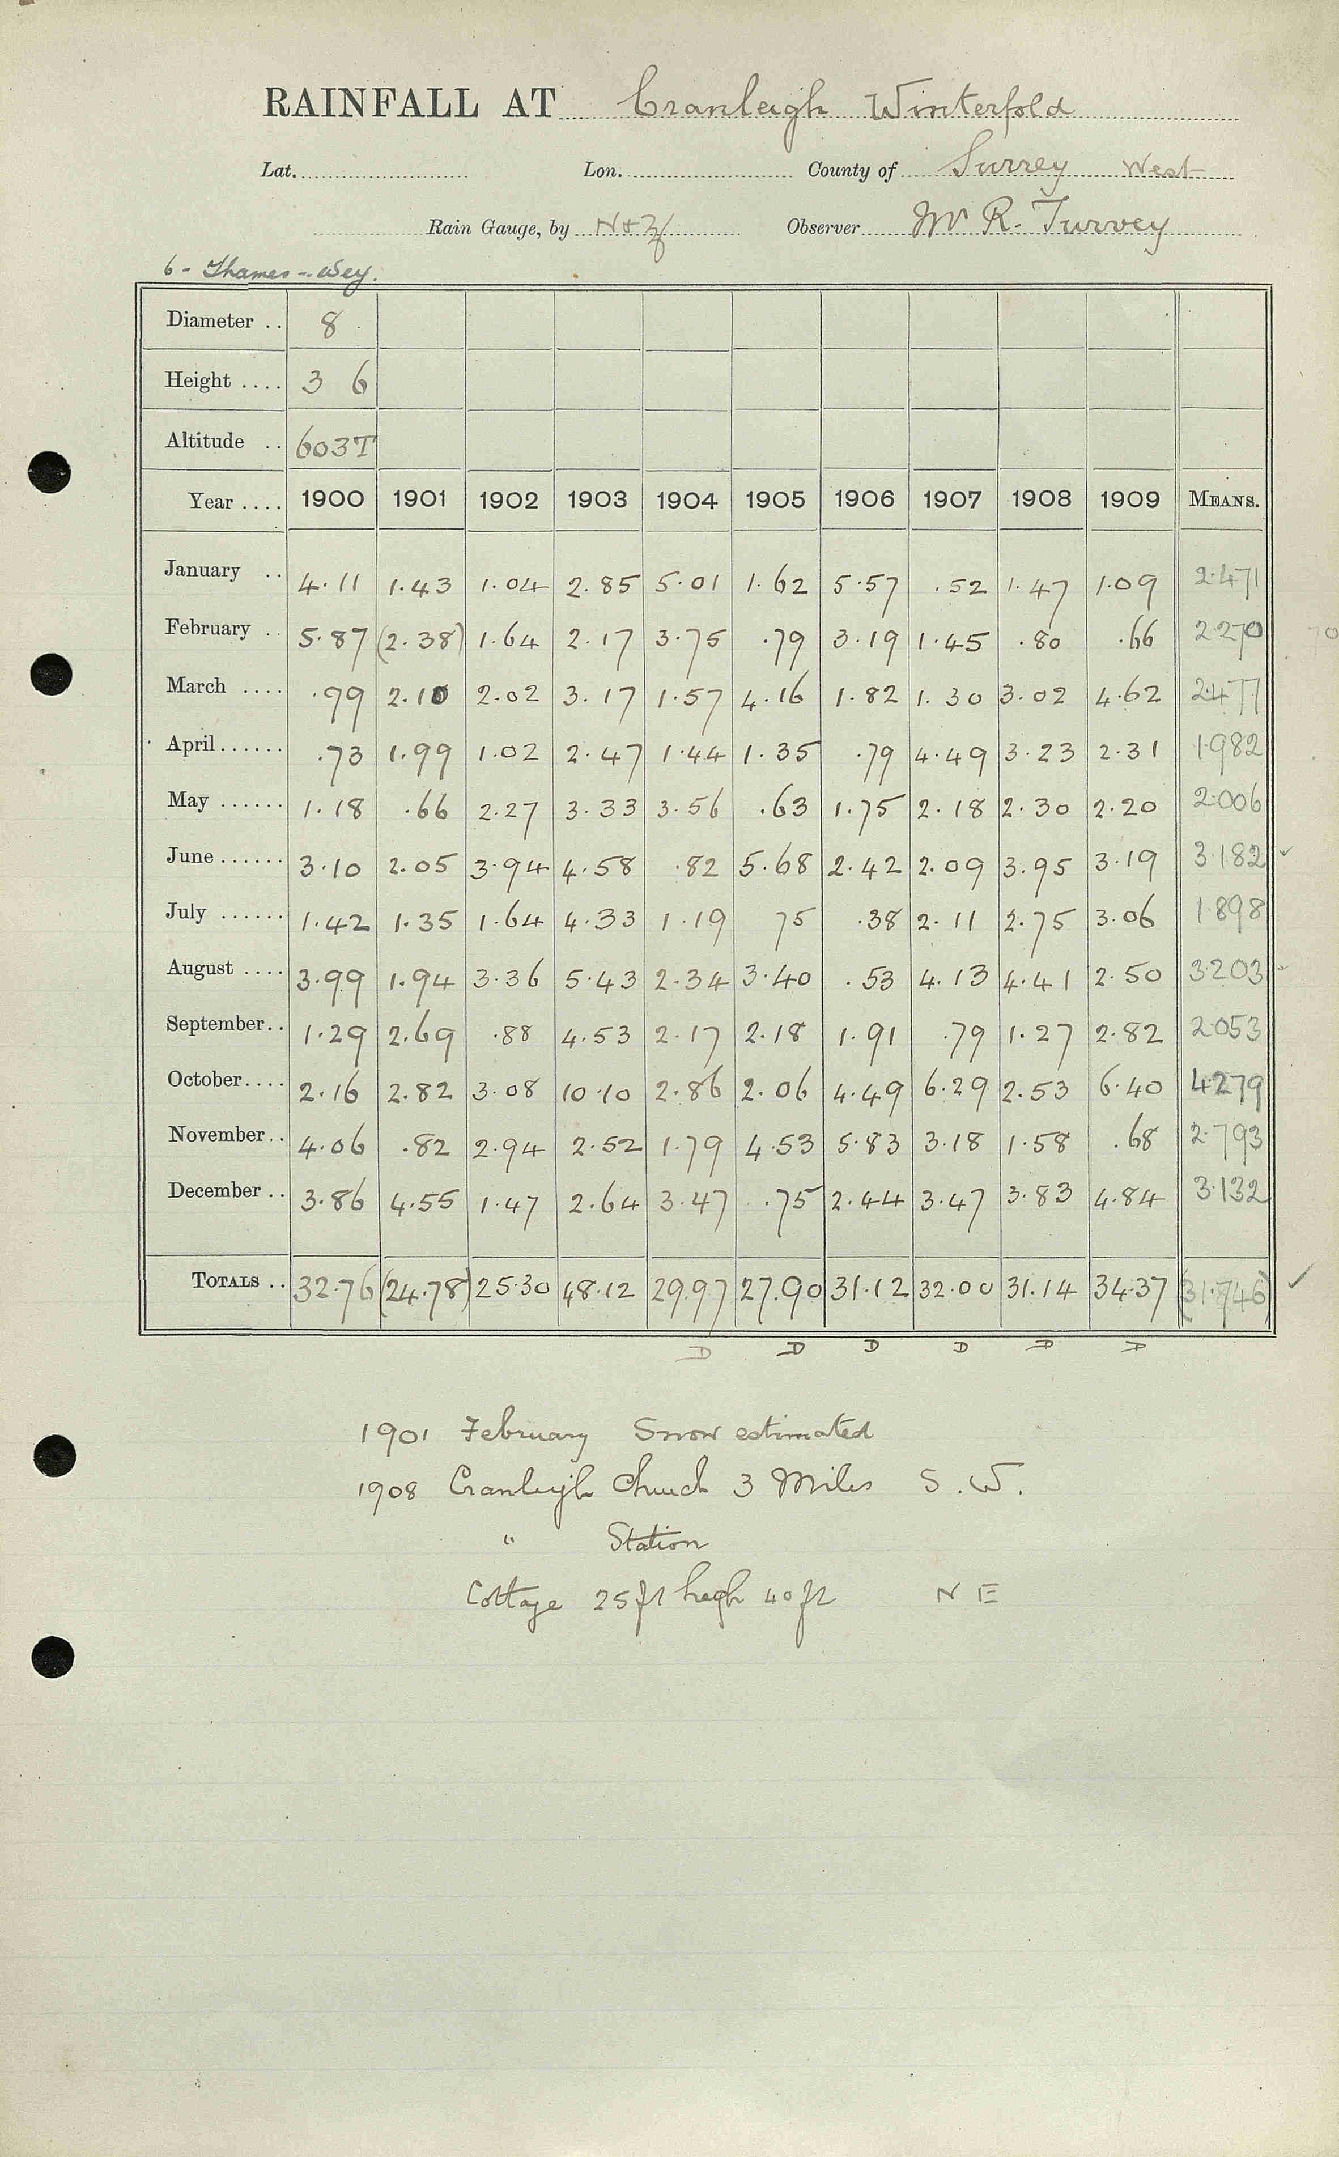 RAINFALL AT Cranleigh Winterfold
Lat. Lon. County of Surrey West
Rain Gauge, by N+Z Observer Mr R. Turvey
6 - Thames - Wey.
Diameter .. 8
Height .... 3 6
Altitude .. 603T
Year .... 1900 1901 1902 1903 1904 1905 1906 1907 1908 1909 MEANS.
January .. 4.11 1.43 1.04 2.85 5.01 1.62 5.57 .52 1.47 1.09 2.471
February .. 5.87 (2.38) 1.64 2.17 3.75 .79 3.19 1.45 .80 .66 2.270 70
March .... .99 2.10 2.02 3.17 1.57 4.16 1.82 1.30 3.02 4.62 2.477
April...... .73 1.99 1.02 2.47 1.44 1.35 .79 4.49 3.23 2.31 1.982
May ...... 1.18 .66 2.27 3.33 3.56 .63 1.75 2.18 2.30 2.20 2.006
June ...... 3.10 2.05 3.94 4.58 .82 5.68 2.42 2.09 3.95 3.19 3.182
July ...... 1.42 1.35 1.64 4.33 1.19 75 .38 2.11 2.75 3.06 1.898
August .... 3.99 1.94 3.36 5.43 2.34 3.40 .53 4.13 4.41 2.50 3.203
September.. 1.29 2.69 .88 4.53 2.17 2.18 1.91 .79 1.27 2.82 2.053
October.... 2.16 2.82 3.08 10.10 2.86 2.06 4.49 6.29 2.53 6.40 4.279
November.. 4.06 .82 2.94 2.52 1.79 4.53 5.83 3.18 1.58 .68 2.793
December .. 3.86 4.55 1.47 2.64 3.47 .75 2.44 3.47 3.83 4.84 3.132
TOTALS .. 32.76 (24.78) 25.30 48.12 29.97 27.90 31.12 32.00 31.14 34.37 (31.746)
D D D D D D
1901 February Snow estimated
1908 Cranleigh Church 3 Miles S.W.
" Station
Cottage 25ft high 40ft N E